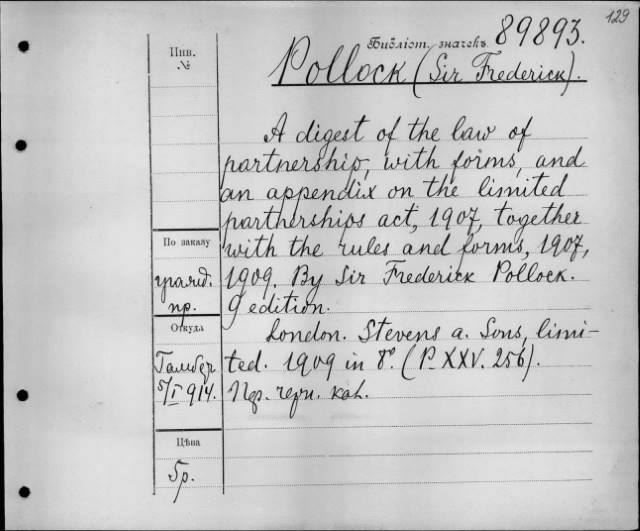 129
Библіот. значекъ 89893.
Инв.
№
Pollock (Sir Frederick).
A digest of the law of
partnership, with forms, and
an appendix on the limited
partherships act, 1907, together
with the rules and forms, 1907,
1909. By Sir Frederick Pollock.
9 edition.
London. Stevens a. Sons, limi-
ted. 1909 in 8º. (P. XXV. 256).
По заказу
гражд.
пр.
Откуда
5/I 914.
Цѣна
5р.